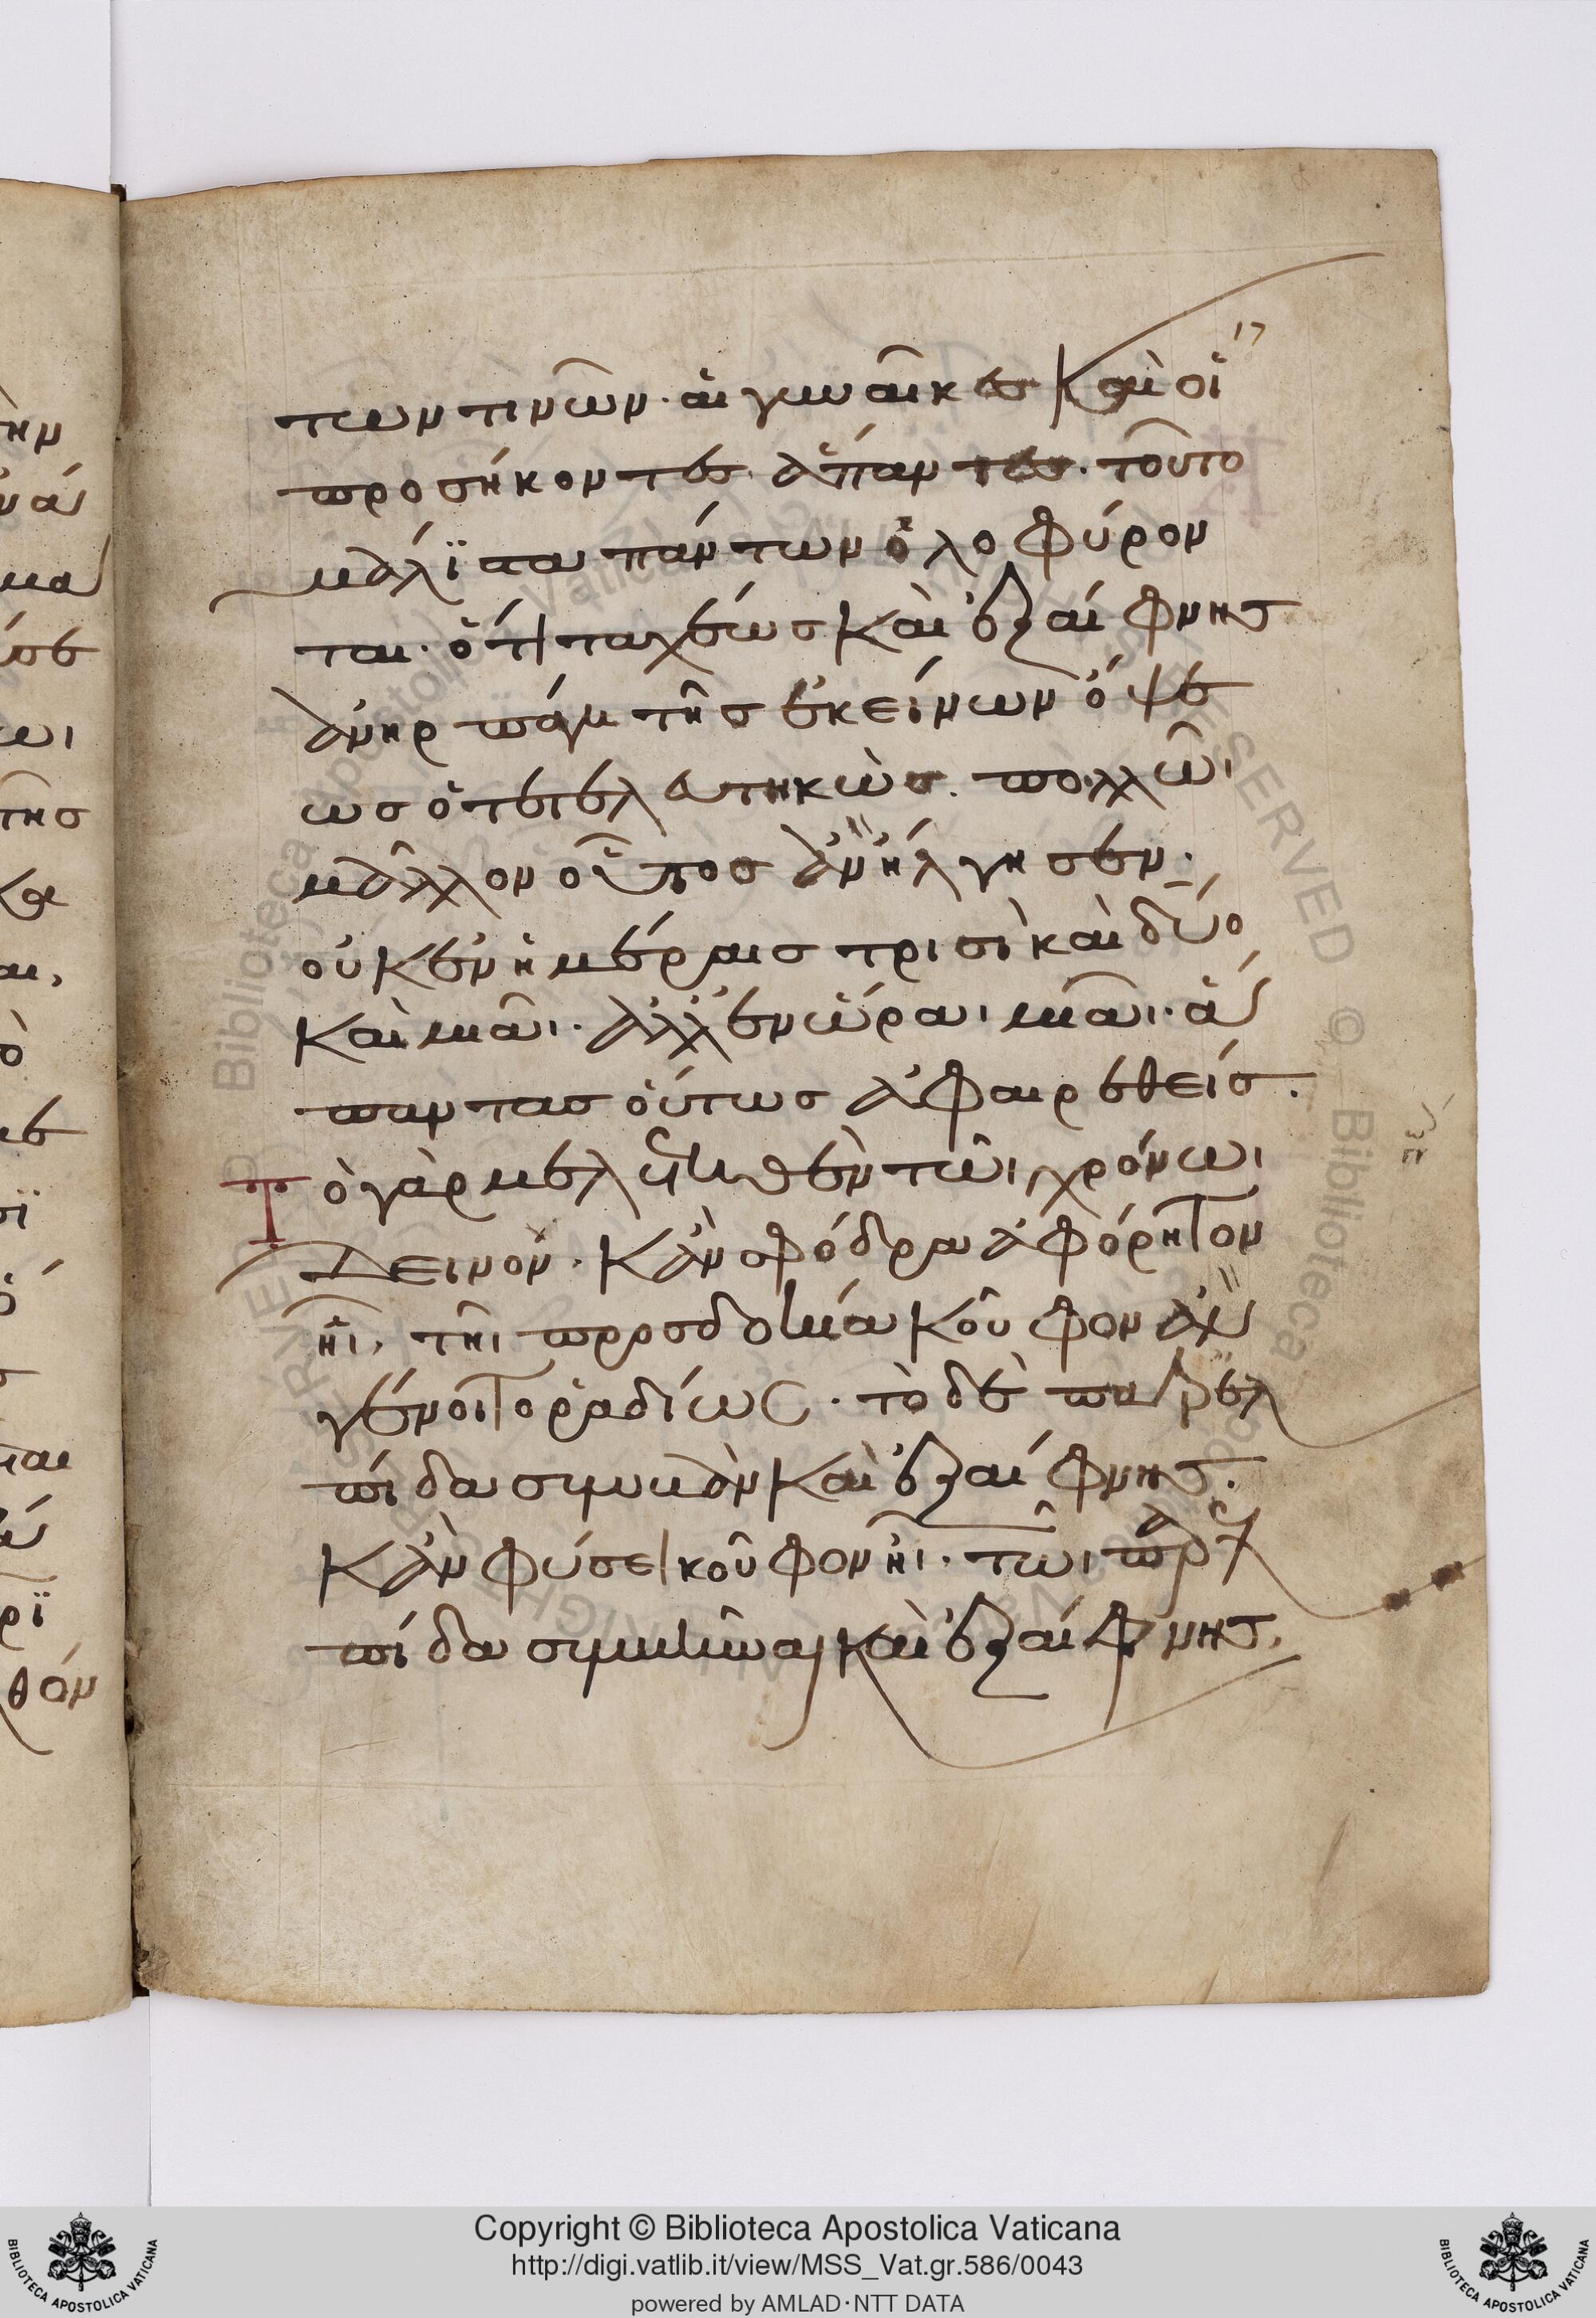 17
των τινῶν· αἱ γυναῖκες καὶ οἱ
προσήκοντες ἅπαντες· τοῦτο
μάλϊστα πάντων ὀλοφύρον
ται· ὅτι ταχέως καὶ ἐξαίφνης
ἀνηρπάγη τῆς ἐκείνων ὄψε
ως ὁ τετελευτηκώς· πολλῶι
μᾶλλον οὗτος ἀνήλγησεν·
οὐκ ἐν ἡμέραις τρισὶ καὶ δύο
καὶ μιᾶι· ἀλλ' ἐν ὥραι μιᾶι· ἅ
παντας οὕτως ἀφαιρεθείς·
Τὸ γὰρ μελετηθὲν τῶι χρόνωι
δεινόν· κἂν σφόδρα ἀφόρητον
ἦι, τῆι προσδοκία κοῦφον ἂν
γένοιτο ῥαδίως· τὸ δὲ παρ' ἐλ
πίδα συμβὰν καὶ ἐξαίφνης·
κἂν φύσει κοῦφον ἦι· τῶι παρ' ἐλ
πίδα συμβῆναι καὶ ἐξαίφνης,
Copyright © Biblioteca Apostolica Vaticana
http://digi.vatlib.it/view/MSS_Vat.gr.586/0043
powered by AMLAD·NTT DATA
BIBLIOTECA APOSTOLICA VATICANA
BIBLIOTECA APOSTOLICA VATICANA